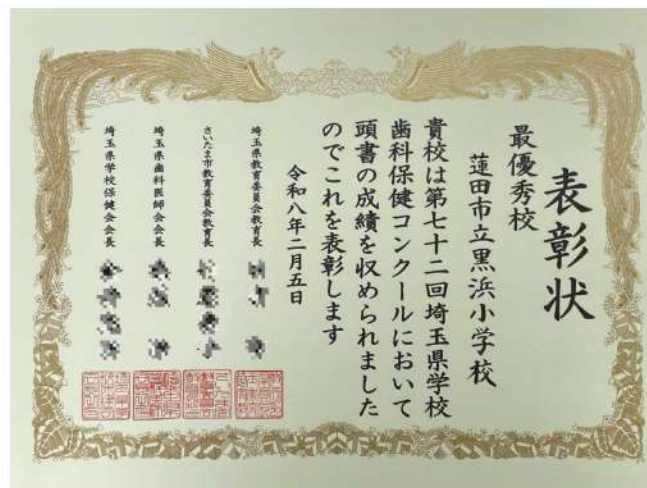 表彰状
最優秀校
蓮田市立黒浜小学校
貴校は第七十二回埼玉県学校
歯科保健コンクールにおいて
頭書の成績を収められました
のでこれを表彰します
令和八年二月五日
埼玉県教育委員会教育長
さいたま市教育委員会教育長
埼玉県歯科医師会会長
埼玉県学校保健会会長